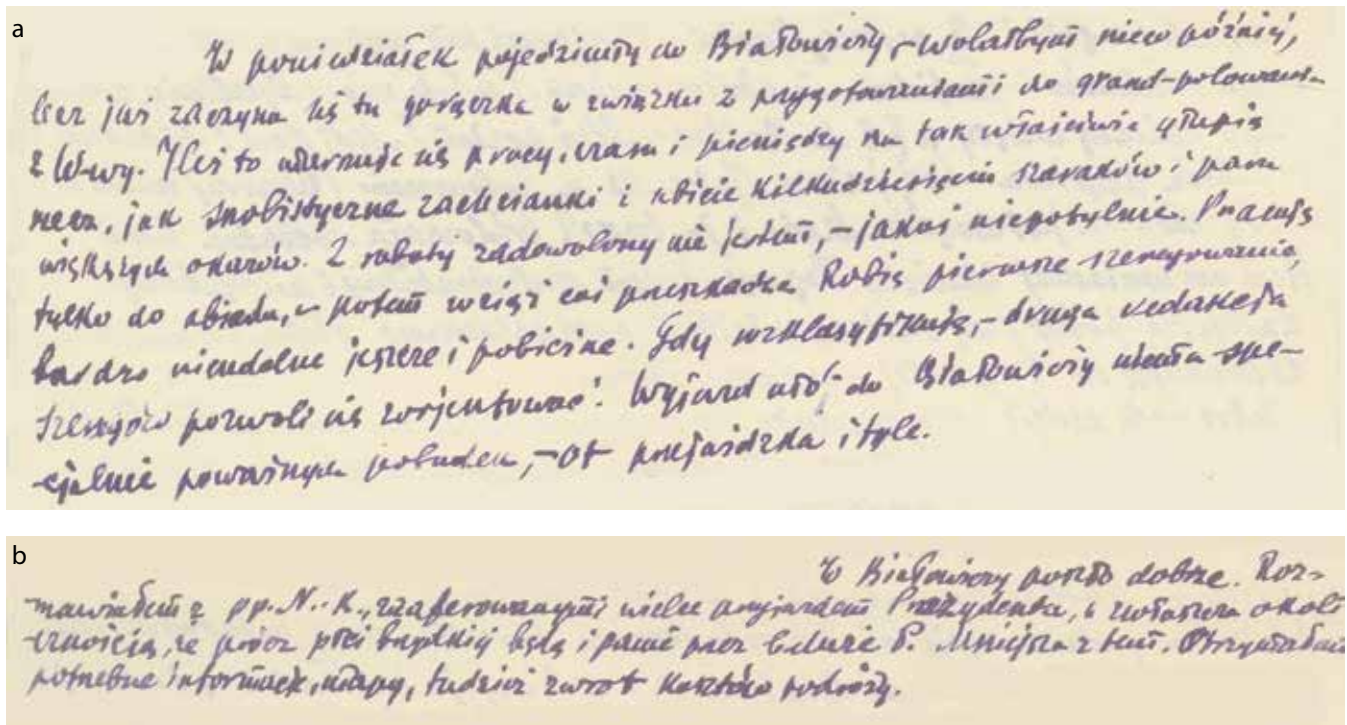 a
W poniedziałek pojedziemy do Białowieży, – wolałbym nieco później,
lecz już zaczyna się tu gorączka w związku z przygotowaniami do grand-polowania
z W-wy. Ileś to zmarnuje się pracy, czasu i pieniędzy na tak właściwie głupią
rzecz, jak snobistyczne zachcianki i ubicie kilkudziesięciu szaraków i paru
większych okazów. Z roboty zadowolony nie jestem, – jakoś niepotylnie. Pracuję
tylko do obiadu, – potem wciąż coś przeszkadza. Robię pierwsze szeregowanie,
bardzo nieudolne jeszcze i pobieżne. Gdy wzklasyfikuję, – druga redakcja
szeregów pozwoli się zorjentować. Wyjazd do Białowieży niema spe–
cjalnie poważnych pobudek, – ot przejażdzka i tyle.
b
W Białowieży poszło dobrze. Roz–
mawiałem z pp. N. - K., zaaferowanymi wielce przyjazdem Prezydenta, a zwłaszcza okoli
cznością, że prócz płci brzydkiej będą i panie Mniejsza z tem. Otrzymałem
potrzebne informacje, mapy, tudzież zwrot kosztów podróży.